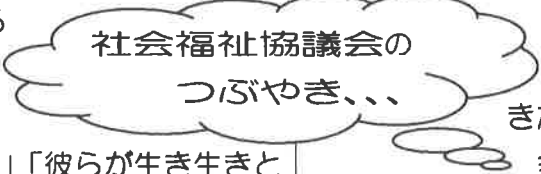 社会福祉協議会の
つぶやき、、、
」「彼らが生き生きと